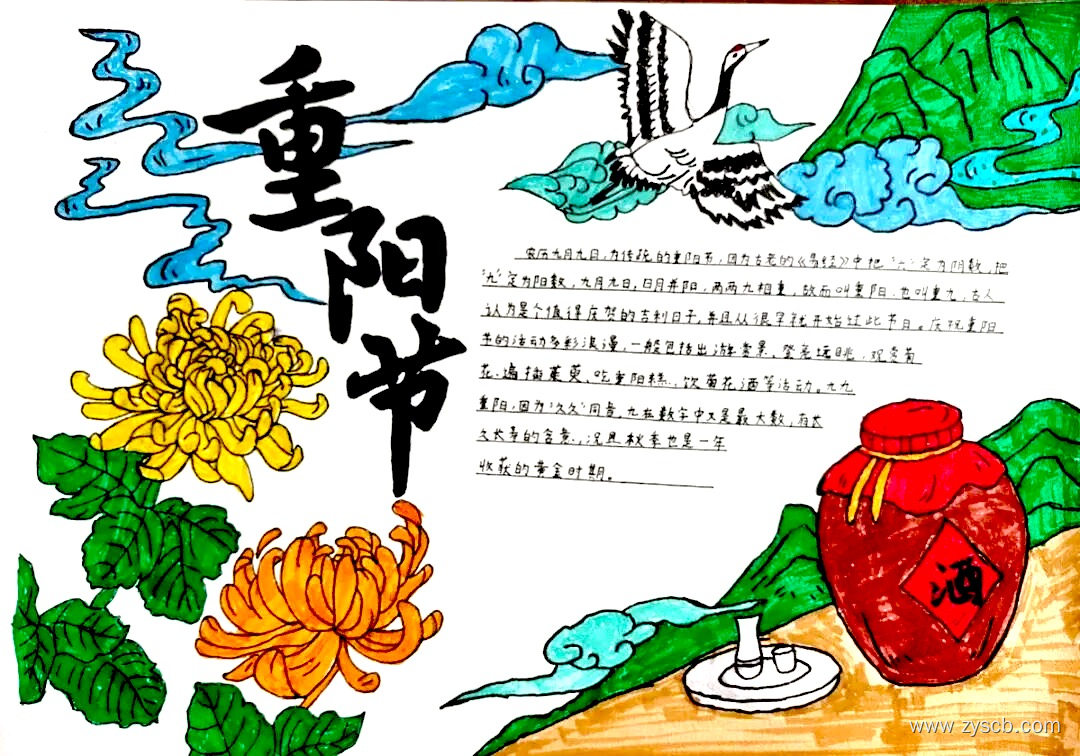 重阳节
农历九月九日,为传统的重阳节,因为古老的《易经》中把“六”定为阴数,把
“九”定为阳数,九月九日,日月并阳,两两九相重,故而叫重阳,也叫重九,古人
认为是个值得庆贺的吉利日子,并且从很早就开始过此节日。庆祝重阳
节的活动多彩浪漫,一般包括出游赏景、登高远眺,观赏菊
花、遍插茱萸、吃重阳糕、饮菊花酒等活动。九九
重阳,因为“久久”同音,九在数字中又是最大数,有长
久长寿的含意,况且秋季也是一年
收获的黄金时期。
酒
www.zyscb.com